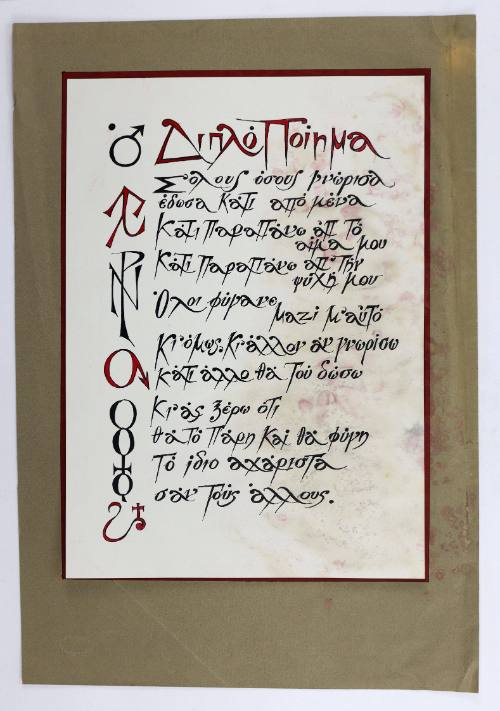 Διπλό Ποίημα
Σ' όλους όσους γνώρισα
έδωσα κάτι από μένα
Κάτι παραπάνω απ' το
αίμα μου
Κάτι παραπάνω απ' την
ψυχή μου
Όλοι φύγανε
μαζί μ' αυτό
Κι όμως, κι άλλον άν γνωρίσω
κάτι άλλο θά τού δώσω
κι άς ξέρω ότι
θά τό πάρη καί θά φύγη
Τό ίδιο αχάριστα
σάν τούς άλλους.